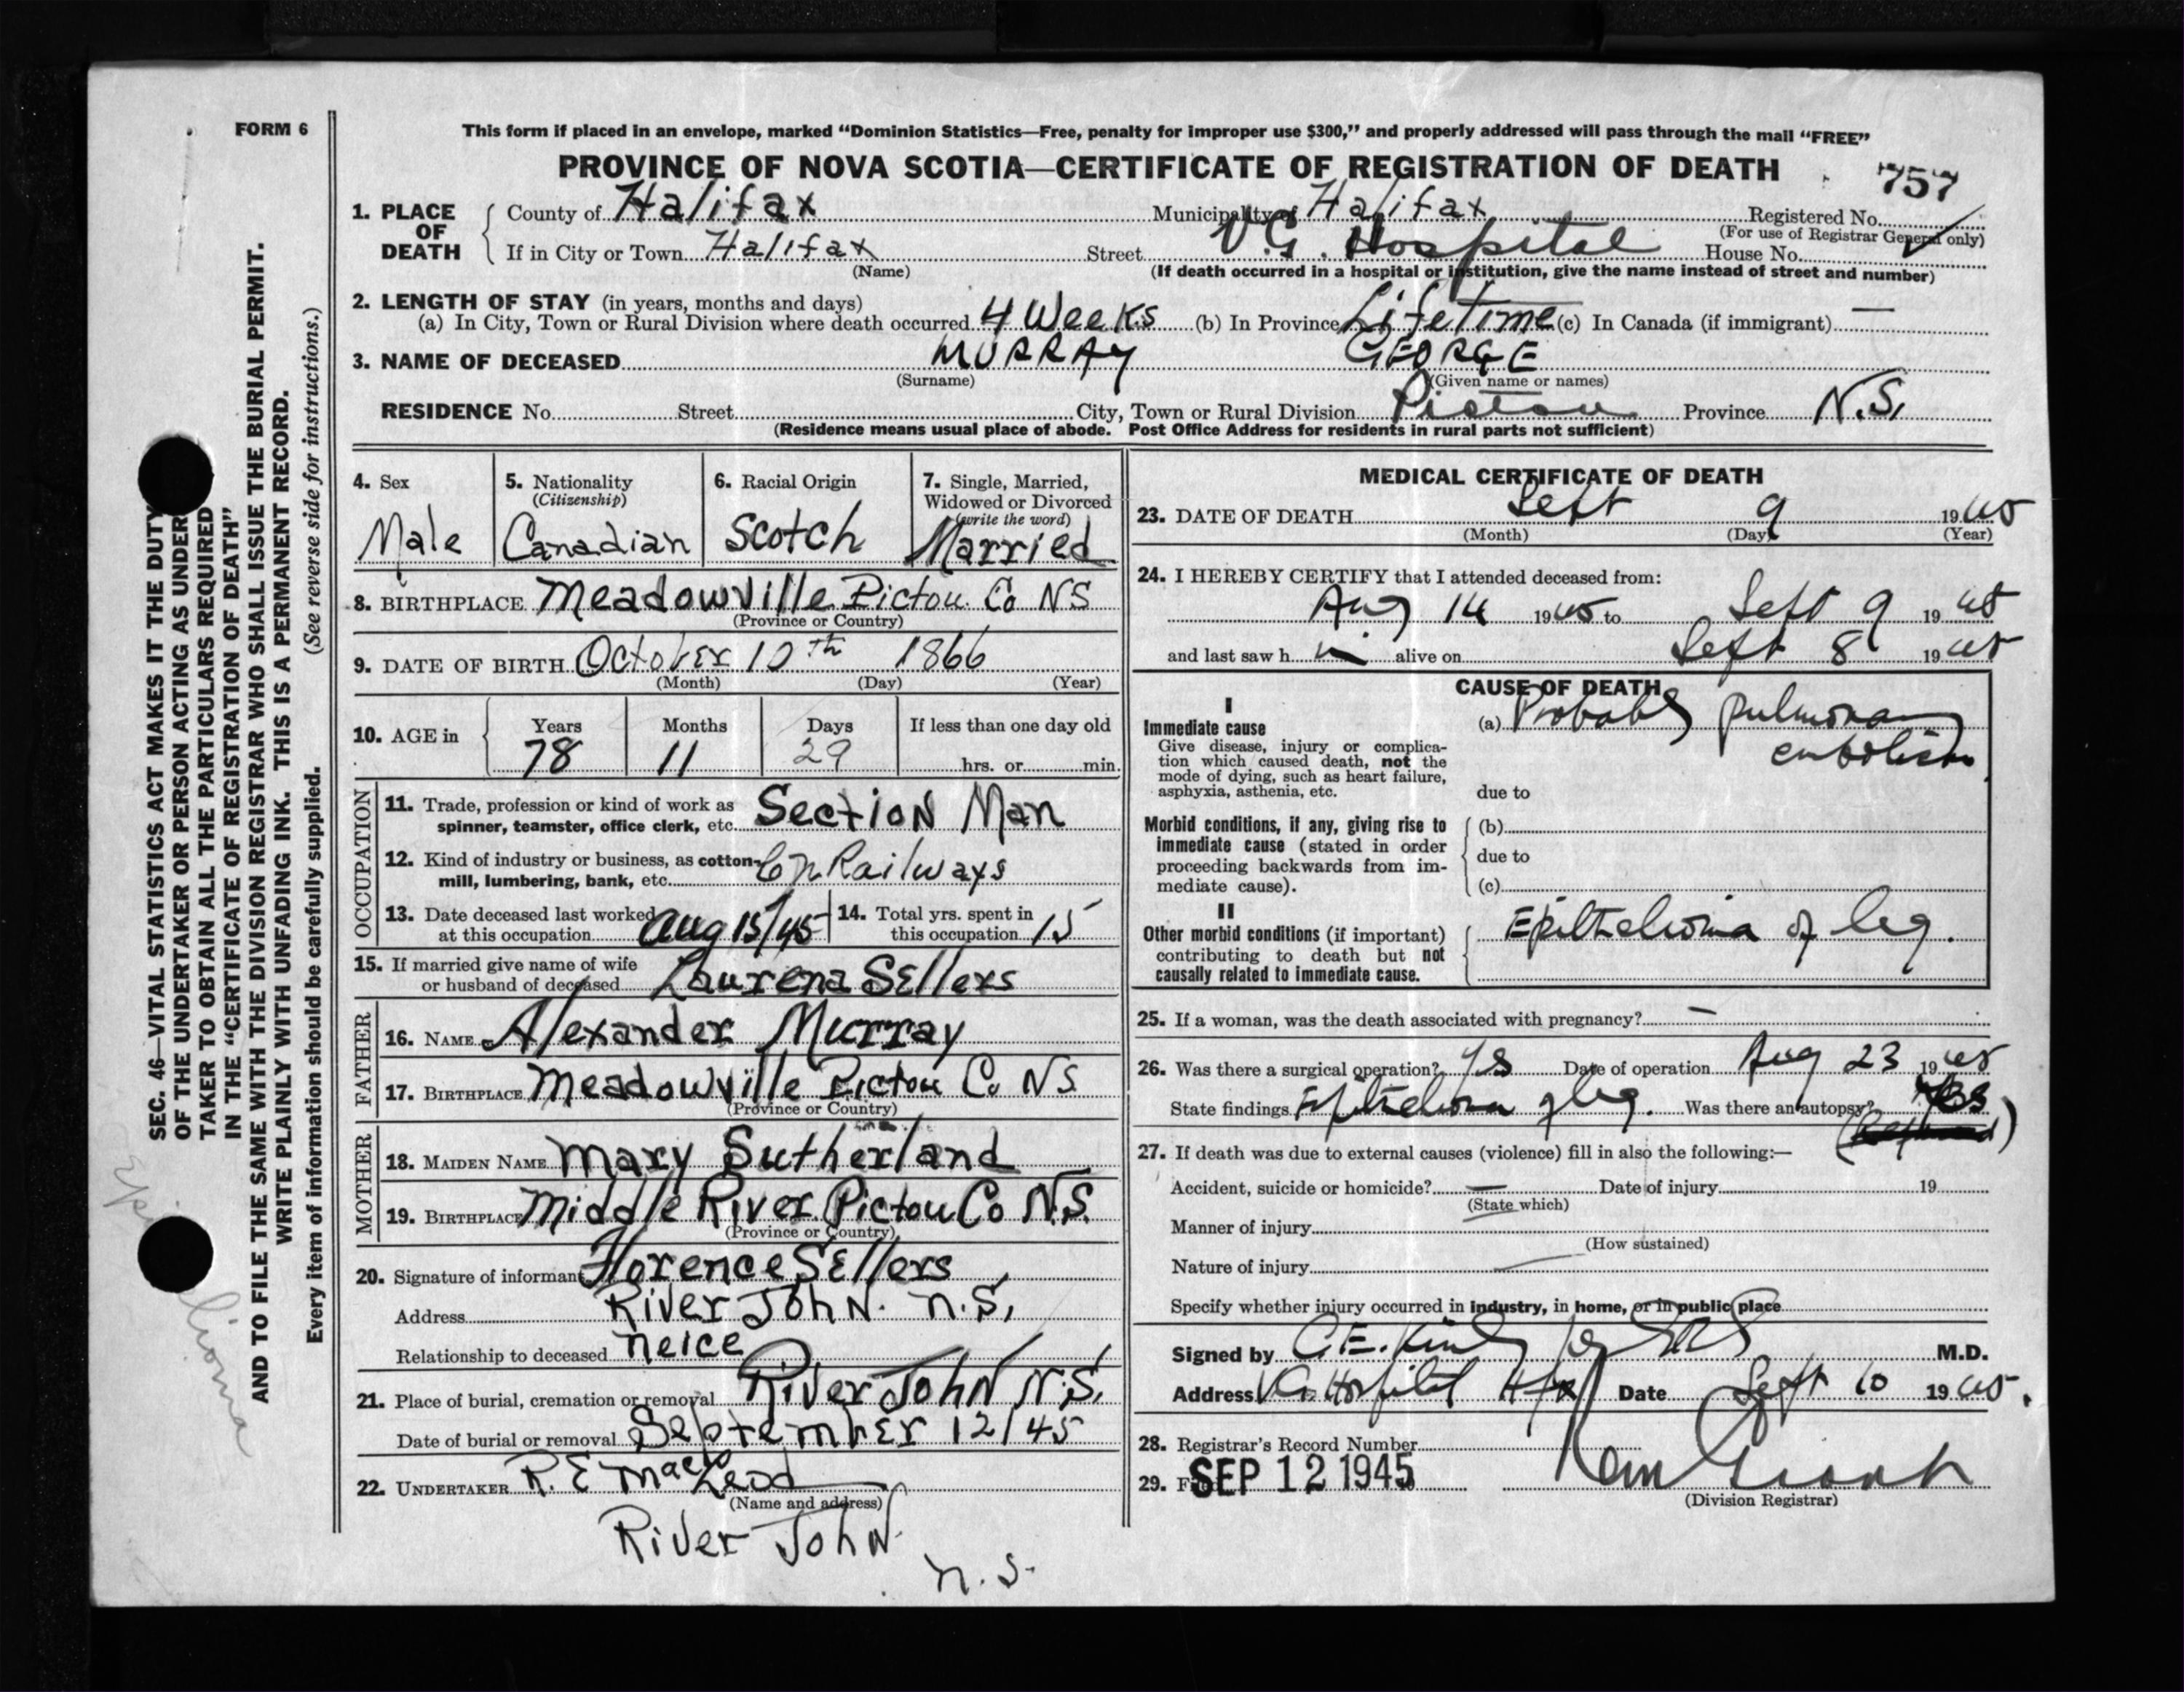 FORM 6
This form if placed in an envelope, marked "Dominion Statistics—Free, penalty for improper use $300," and properly addressed will pass through the mail "FREE"
PROVINCE OF NOVA SCOTIA—CERTIFICATE OF REGISTRATION OF DEATH
757
1. PLACE OF DEATH
County of Halifax Municipality of Halifax Registered No.
(For use of Registrar General only)
If in City or Town Halifax Street V.G. Hospital House No.
(Name) (If death occurred in a hospital or institution, give the name instead of street and number)
2. LENGTH OF STAY (in years, months and days)
(a) In City, Town or Rural Division where death occurred 4 Weeks (b) In Province Lifetime (c) In Canada (if immigrant) —
3. NAME OF DECEASED MURRAY GEORGE
(Surname) (Given name or names)
RESIDENCE No. Street City, Town or Rural Division Pictou Province N.S.
(Residence means usual place of abode. Post Office Address for residents in rural parts not sufficient)
4. Sex
Male
5. Nationality
(Citizenship)
Canadian
6. Racial Origin
Scotch
7. Single, Married,
Widowed or Divorced
(write the word)
Married
8. BIRTHPLACE Meadowville Pictou Co NS
(Province or Country)
9. DATE OF BIRTH October 10th 1866
(Month) (Day) (Year)
10. AGE in Years Months Days If less than one day old
78 11 29 hrs. or min.
OCCUPATION
11. Trade, profession or kind of work as
spinner, teamster, office clerk, etc. Section Man
12. Kind of industry or business, as cotton-
mill, lumbering, bank, etc. Cn Railways
13. Date deceased last worked
at this occupation Aug 15/45
14. Total yrs. spent in
this occupation 15
15. If married give name of wife
or husband of deceased Laurena Sellers
FATHER
16. NAME Alexander Murray
17. BIRTHPLACE Meadowville Pictou Co NS
(Province or Country)
MOTHER
18. MAIDEN NAME Mary Sutherland
19. BIRTHPLACE Middle River Pictou Co N.S.
(Province or Country)
20. Signature of informant Florence Sellers
Address River John N.S.
Relationship to deceased Neice
21. Place of burial, cremation or removal River John N.S.
Date of burial or removal September 12/45
22. UNDERTAKER R.E MacLeod
(Name and address)
River John
N.S.
MEDICAL CERTIFICATE OF DEATH
23. DATE OF DEATH Sept 9 1945
(Month) (Day) (Year)
24. I HEREBY CERTIFY that I attended deceased from:
Aug 14 1945 to Sept 9 1945
and last saw h im alive on Sept 8 1945
CAUSE OF DEATH
I
Immediate cause
Give disease, injury or complica-
tion which caused death, not the
mode of dying, such as heart failure,
asphyxia, asthenia, etc.
(a) Probably pulmonary
embolism
due to
Morbid conditions, if any, giving rise to
immediate cause (stated in order
proceeding backwards from im-
mediate cause).
(b)
due to
(c)
II
Other morbid conditions (if important)
contributing to death but not
causally related to immediate cause.
Epithelioma of leg.
25. If a woman, was the death associated with pregnancy? —
26. Was there a surgical operation? Yes Date of operation Aug 23 1945
State findings Epithelioma of leg. Was there an autopsy? Yes
27. If death was due to external causes (violence) fill in also the following:—
Accident, suicide or homicide? — Date of injury 19
(State which)
Manner of injury
(How sustained)
Nature of injury —
Specify whether injury occurred in industry, in home, or in public place
Signed by C.E. M.D.
Address V.G. Hospital Hfx Date Sept 10 1945.
28. Registrar's Record Number
29. SEP 12 1945
(Division Registrar)
SEC. 46—VITAL STATISTICS ACT MAKES IT THE DUTY
OF THE UNDERTAKER OR PERSON ACTING AS UNDER
TAKER TO OBTAIN ALL THE PARTICULARS REQUIRED
IN THE "CERTIFICATE OF REGISTRATION OF DEATH"
AND TO FILE THE SAME WITH THE DIVISION REGISTRAR WHO SHALL ISSUE THE BURIAL PERMIT.
WRITE PLAINLY WITH UNFADING INK. THIS IS A PERMANENT RECORD.
Every item of information should be carefully supplied. (See reverse side for instructions.)